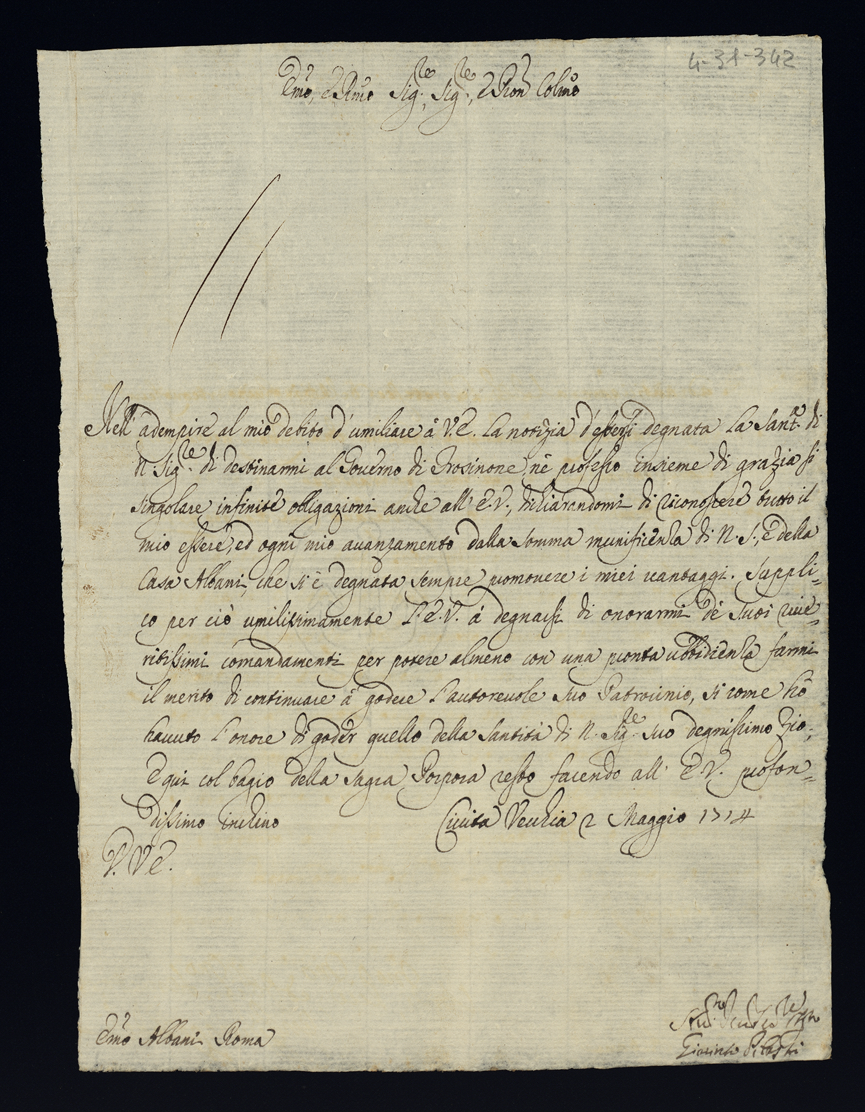 4-31-342
Em̃o, e Rm̃o Sig.re, Sig.re, e Pron Colm̃o
Nell' adempire al mio debito d'umiliare à V.E. la notizia d'essersi degnata la Sant.à di
N. Sig.re di destinarmi al Governo di Frosinone, ne professo insieme di grazia sì
singolare infinite obligazioni anche all' E.V., dichiarandomi di riconoscere tutto il
mio essere, ed ogni mio avanzamento dalla somma munificenza di N. S., e della
Casa Albani, che si è degnata sempre promovere i miei vantaggi. Suppli=
co per ciò umilissimamente l'E.V. à degnarsi di onorarmi de Suoi rive=
ritissimi comandamenti per potere almeno con una pronta ubbidienza farmi
il merito di continuare à godere l'autorevole suo Patrocinio, si come hò
havuto l'onore di goder quello della Santità di N. Sig.re suo degnissimo Zio;
E qui col bagio della Sagra Porpora resto facendo all' E.V. profon=
dissimo inchino Civita Vecchia 2 Maggio 1714
V. V E.
Em̃o Albani Roma
Giacinto